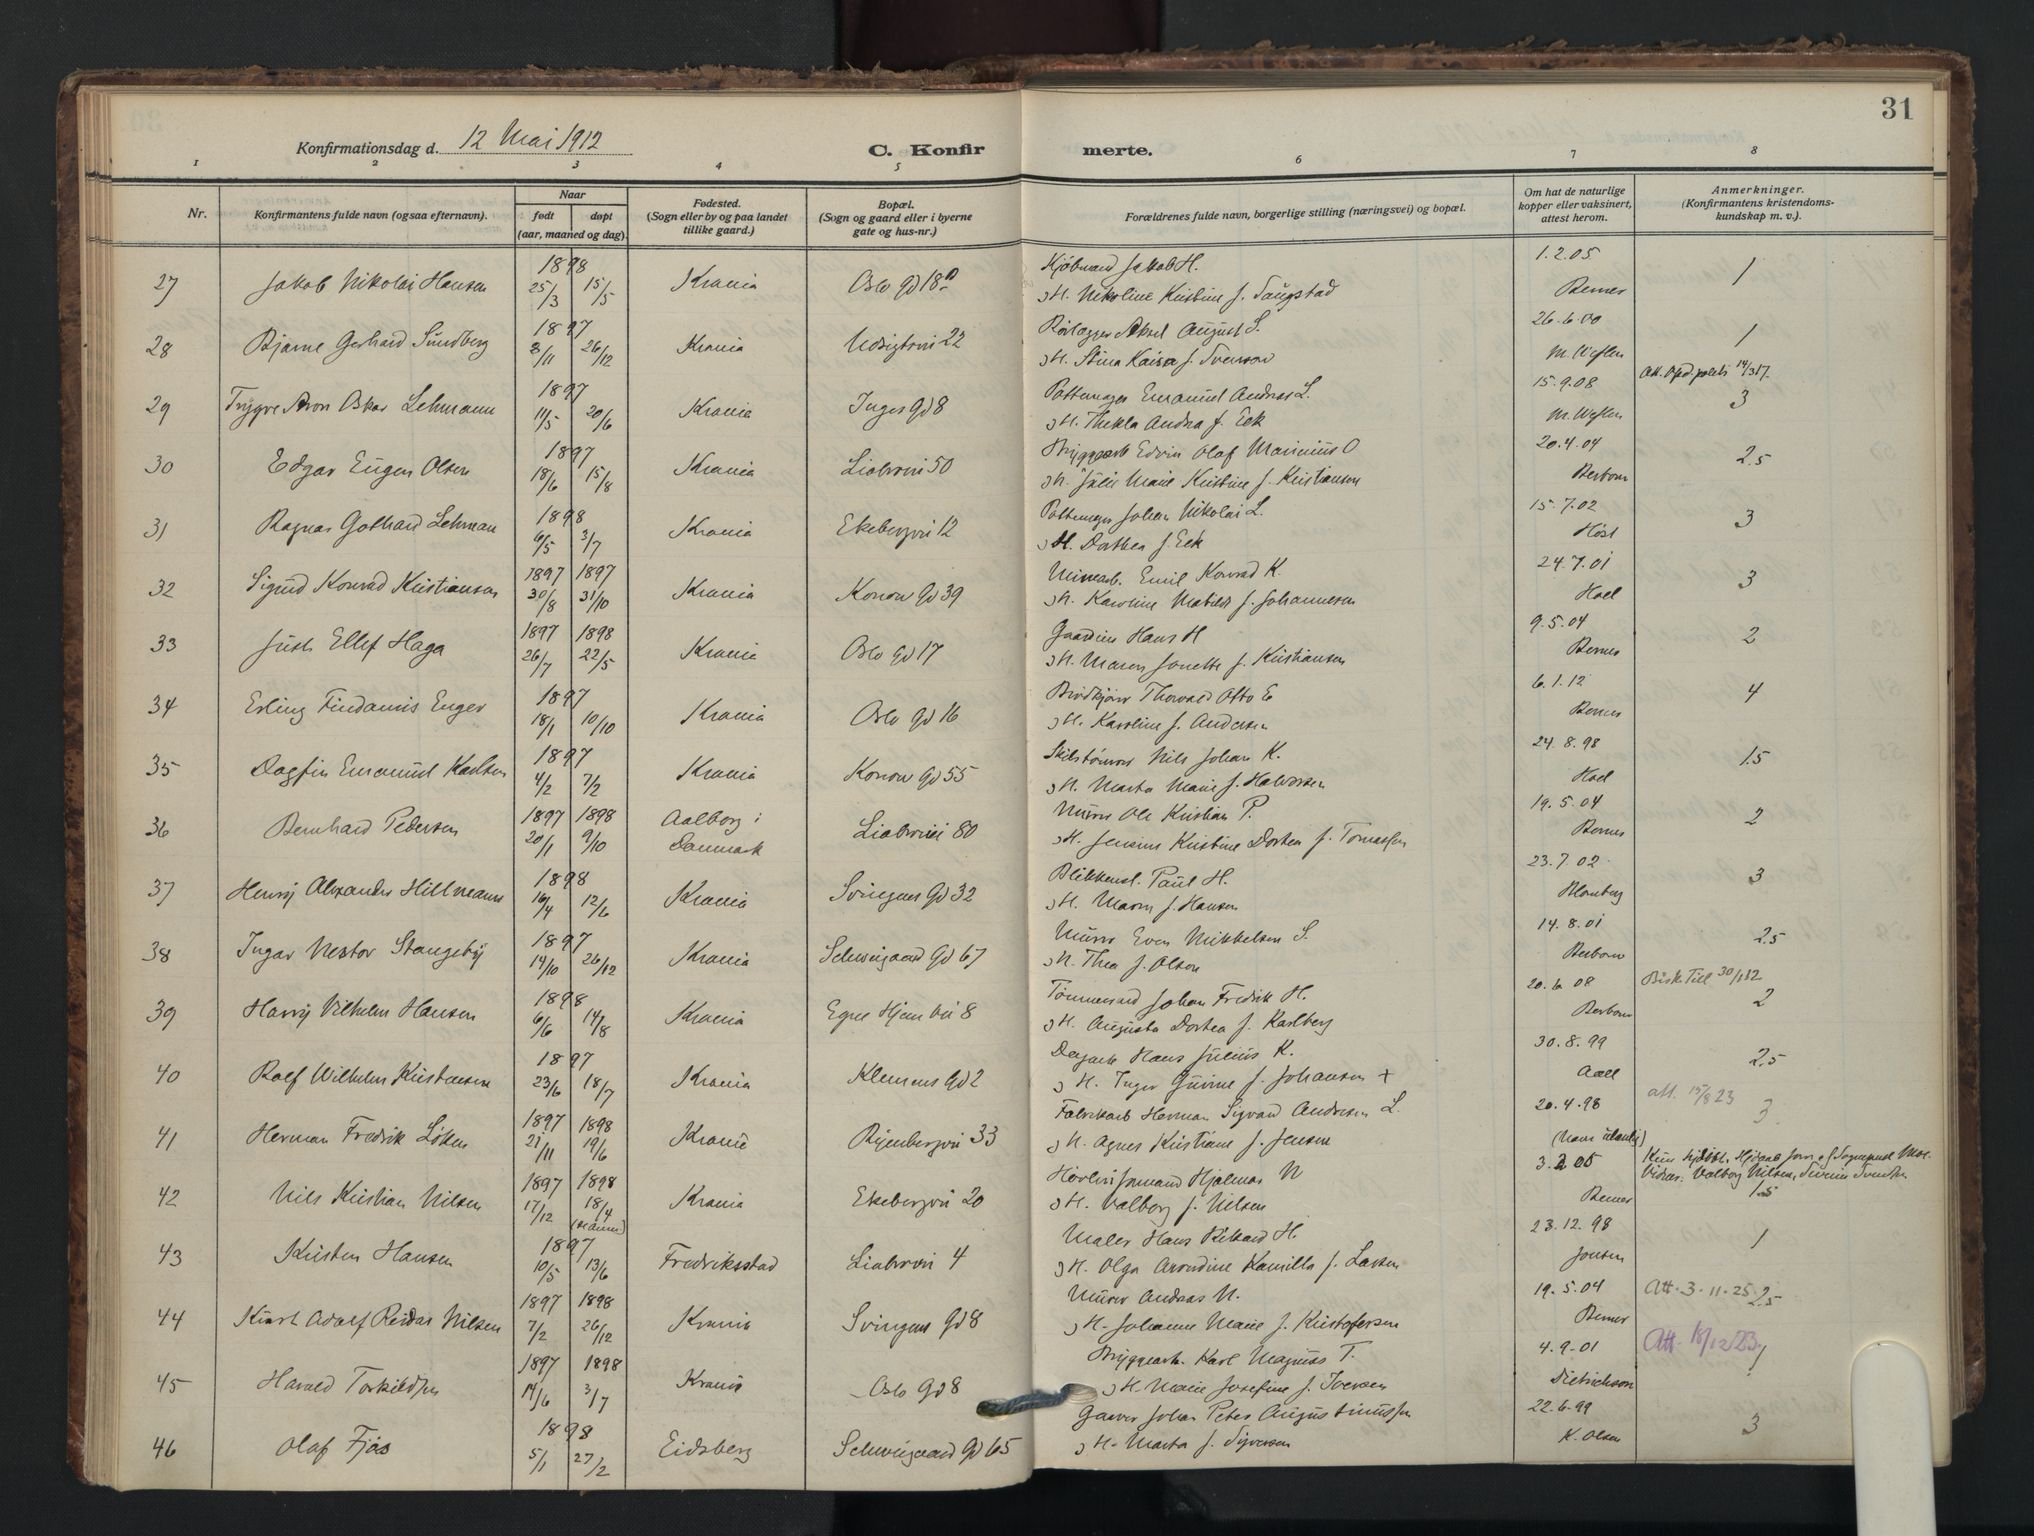 31
Konfirmationsdag d. 12 Mai 1912
C. Konfirmerte.
1 2 3 4 5 6 7 8
Nr.
Konfirmantens fulde navn (ogsaa efternavn).
Naar
født
døpt
(aar, maaned og dag).
Fødested.
(Sogn eller by og paa landet
tillike gaard.)
Bopæl.
(Sogn og gaard eller i byerne
gate og hus-nr.)
Forældrenes fulde navn, borgerlige stilling (næringsvei) og bopæl.
Om hat de naturlige
kopper eller vaksinert,
attest herom.
Anmerkninger.
(Konfirmantens kristendoms-
kundskap m. v.).
27 Jakob Nikolai Hansen 1898 25/3 15/5 Krania Oslo gd 18 Jakob H. 1.2.05 1
og H. Nikoline Kristine f. Saugstad Berner
28 Bjarne Gerhard Sundberg 1897 3/11 26/12 Krania Utsigtsvei 22 Rørlægger Aksel August S. 26.6.00 1
og H. Stina Kaisa f. Svenson
Att. Opd. politi 14/3 17.
29 Trygve Aron Oskar Lehmann 1897 11/5 20/6 Krania Inges gd 8 Pottemager Emanuel Andreas L. 15.9.08 3
og H. Thekla Andrea f. Eek
30 Edgar Eugen Olsen 1897 18/6 15/8 Krania Liabrovei 50 Bryggearb Edvin Olaf Marinius O 20.4.04 2.5
og H. Julie Marie Kristine f. Kristiansen
31 Ragnar Gothard Lehman 1898 6/5 3/7 Krania Ekebergvei 12 Pottemager Johan Nikolai L. 15.7.02 3
og H. Dorthea f. Eek Høst
32 Sigurd Konrad Kristiansen 1897 1897 30/8 31/10 Krania Konow gd 39 Minearb. Emil Konrad K. 24.7.01 3
og H. Karoline Matilde f. Johannesen Hoel
33 Just Ellef Haga 1897 1898 26/7 22/5 Krania Oslo gd 17 Hans H 9.5.04 2
og H. Maren Jonette f. Kristiansen Berner
34 Erling Findanus Enger 1897 18/1 10/10 Krania Oslo gd 16 Brødkjører Thorvald Otto E 6.1.12 4
og H. Karoline f. Andersen Berner
35 Dagfin Emanuel Karlsen 1897 4/2 7/2 Krania Konow gd 55 Nils Johan K. 24.8.98 1.5
og H. Marta Marie f. Halvorsen Hoel
36 Bernhard Pedersen 1897 1898 20/1 9/10 Aalborg i Danmark Liabrovei 80 Murer Ole Kristian P. 19.5.04 2
og H. Jensine Kristine Dorthea f. Tomassen Berner
37 Henry Alexander Hillmann 1898 16/4 12/6 Krania Svingens gd 32 Blikkensl. Paul H. 23.7.02 3
og H. Maren f. Hansen Blomberg
38 Ingar Nestor Stangeby 1897 14/10 26/12 Krania Schweigaard gd 67 Murer Even Mikkelsen S. 14.8.01 2.5
og H. Thea f. Olsen
39 Harry Vilhelm Hansen 1898 6/6 14/8 Krania Egne Hjem vei 8 Tømmermand Johan Fredrik H. 20.6.08 2
og H. Augusta Dortea f. Karlberg
40 Rolf Wilhelm Kristiansen 1897 23/6 18/7 Krania Klemens gd 2 Dagarb Hans Julius K. 30.8.99 2.5
og H. Inger Gurine f. Johansen + Aall
41 Herman Fredrik Løken 1897 1898 21/11 19/6 Krania Ryenbergvei 33 Fabrikarb Herman Sigvard Andersen L. 20.4.98 3
att. 15/8 23
og H. Agnes Kristiane f. Jensen
42 Nils Kristian Nilsen 1897 1898 17/12 18/4 Krania Ekebergvei 20 Hjalmar N 3.2 05 1.5
Vidner: Valborg Nilsen
og H. Valborg f. Nilsen Berner
43 Kristen Hansen 1897 10/5 13/6 Fredriksstad Liabrovei 4 Maler Hans Rikard H. 23.12.98 1
og H. Olga Arondine Kamilla f. Larsen Jensen
44 Kurt Adolf Reidar Nilsen 1897 1898 7/2 26/12 Krania Svingens gd 8 Murer Andreas N. 19.5.04 2.5
Att. 3-11-25
og H. Johanne Marie f. Kristofersen Berner
45 Harald Torkildsen 1897 1898 14/6 3/7 Krania Oslo gd 8 Bryggearb. Karl Magnus T. 4.9.01 1
Att. 18/12 23.
og H. Marie Josefine f. Iversen Dietrichson
46 Olaf Fjøs 1898 5/1 27/2 Eidsberg Schweigaard gd 65 Johan Peter 22.6.99 3
og H. Marta f. Syversen K. Olsen